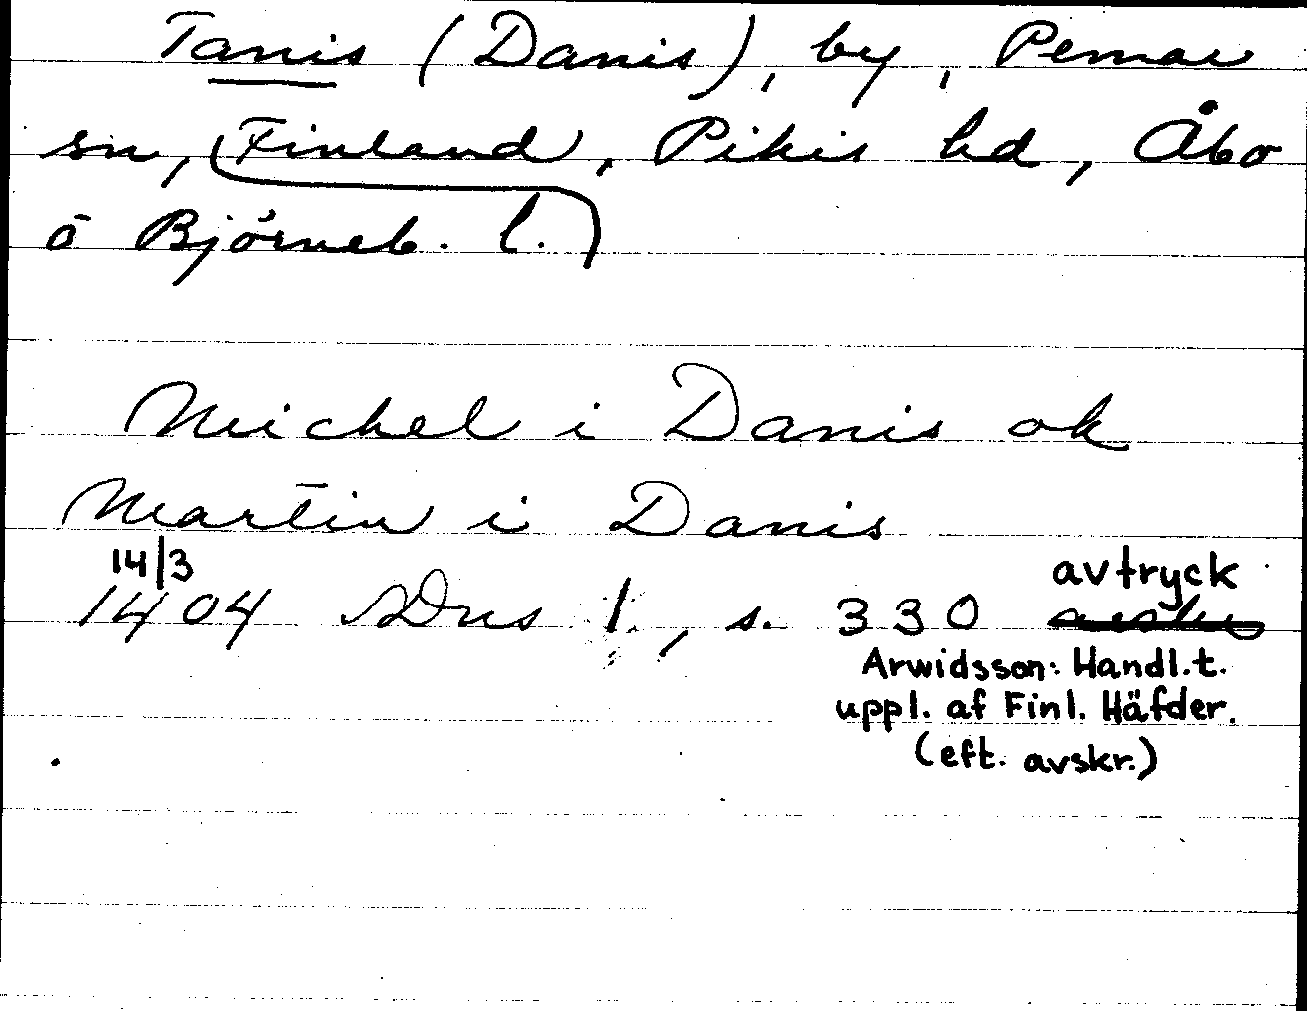 Tanis (Danis), by, Pemar
sn, Finland, Pikis hd, Åbo
o Björneb. l.
Michel i Danis ok
Martin i Danis
14/3
1404 SDns 1, s. 330 avtryck
Arwidsson: Handl. t.
uppl. af Finl. Häfder.
(eft. avskr.)